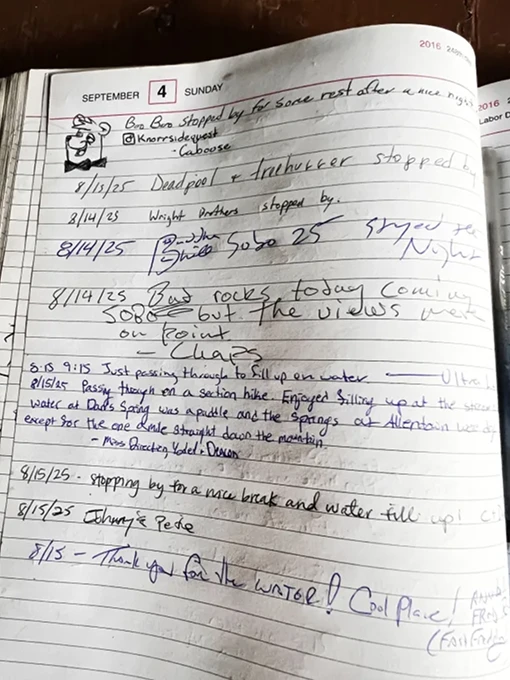 2016
SEPTEMBER 4 SUNDAY
2016
Labor D
Bro Bruno stopped by for some rest after a nice night
Knorrsidequest
- Caboose
8/13/25 Deadpool + treehugger stopped by
8/14/25 Wright Brothers stopped by.
8/14/25 SoBo 25 stayed
Night
8/14/25 Bad rocks today coming
SOBO but the views were
on point
- Chaps
8.15 9:15 Just passing through to fill up on water Ultra
8/15/25 Passing through on a section hike. Enjoyed filling up at the
water at Dan's Spring was a puddle and the springs at Allentown were
except for the one a mile straight down the mountain.
- Miss Direction Yodel & Deacon
8/15/25 - stopping by for a nice break and water fill up!
8/15/25 Johnny & Pete
8/15 - Thank you for the WATER! Cool Place!